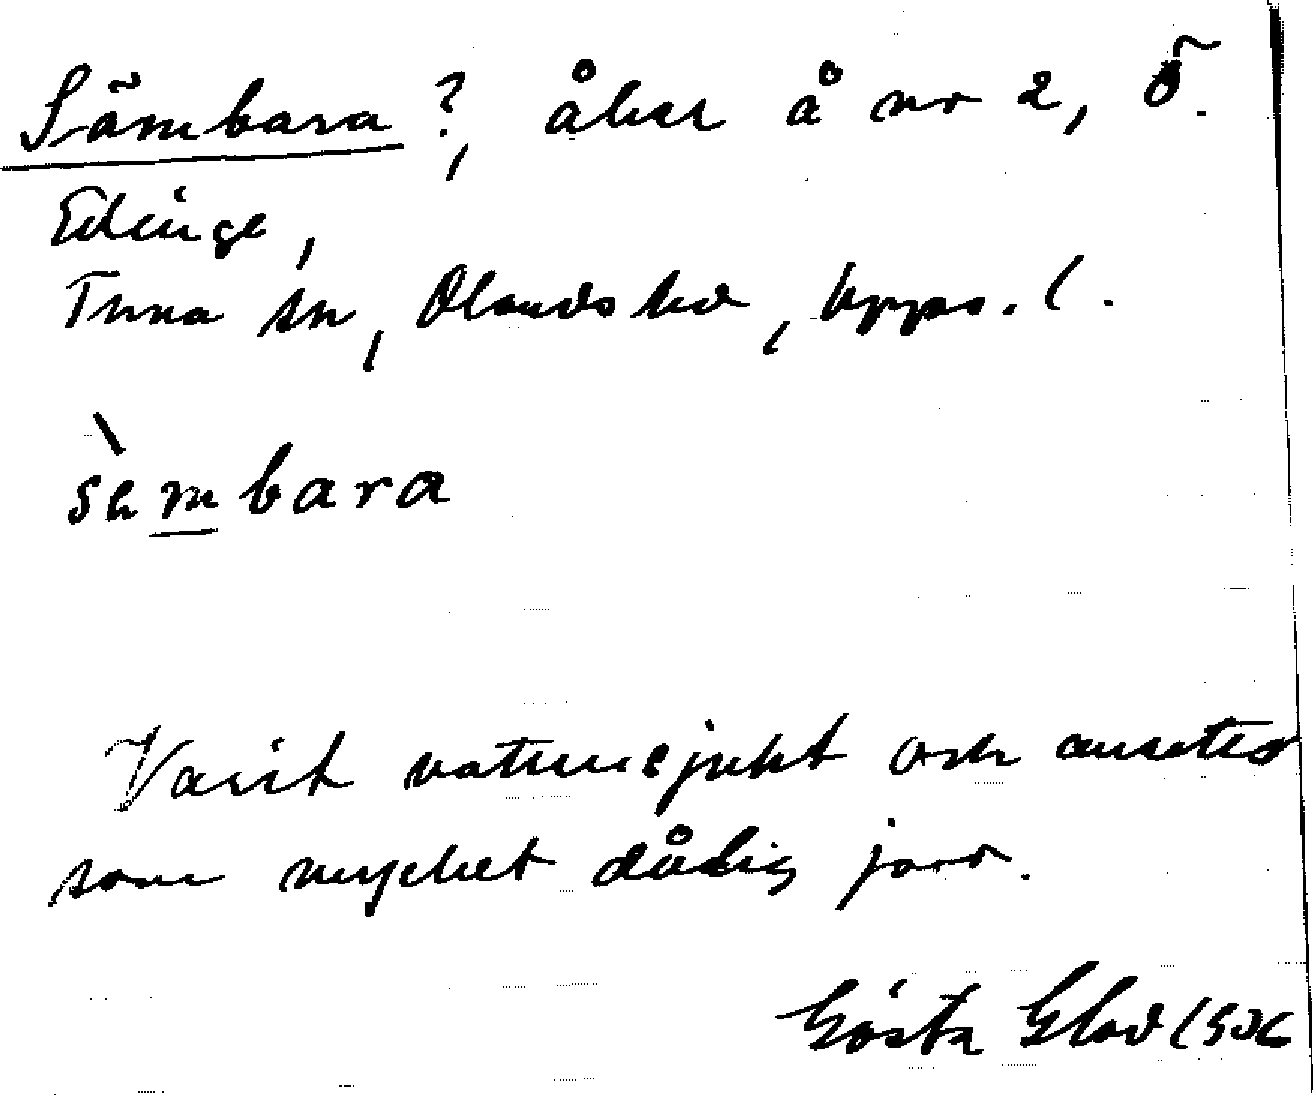 Sämbara ?, åker å nr 2, Ö.
Edinge,
Tuna sn, Olands hd, Upps. l.
sèmbara
Varit vattensjukt och ansetts
som mycket dålig jord.
Gösta Elod 1936